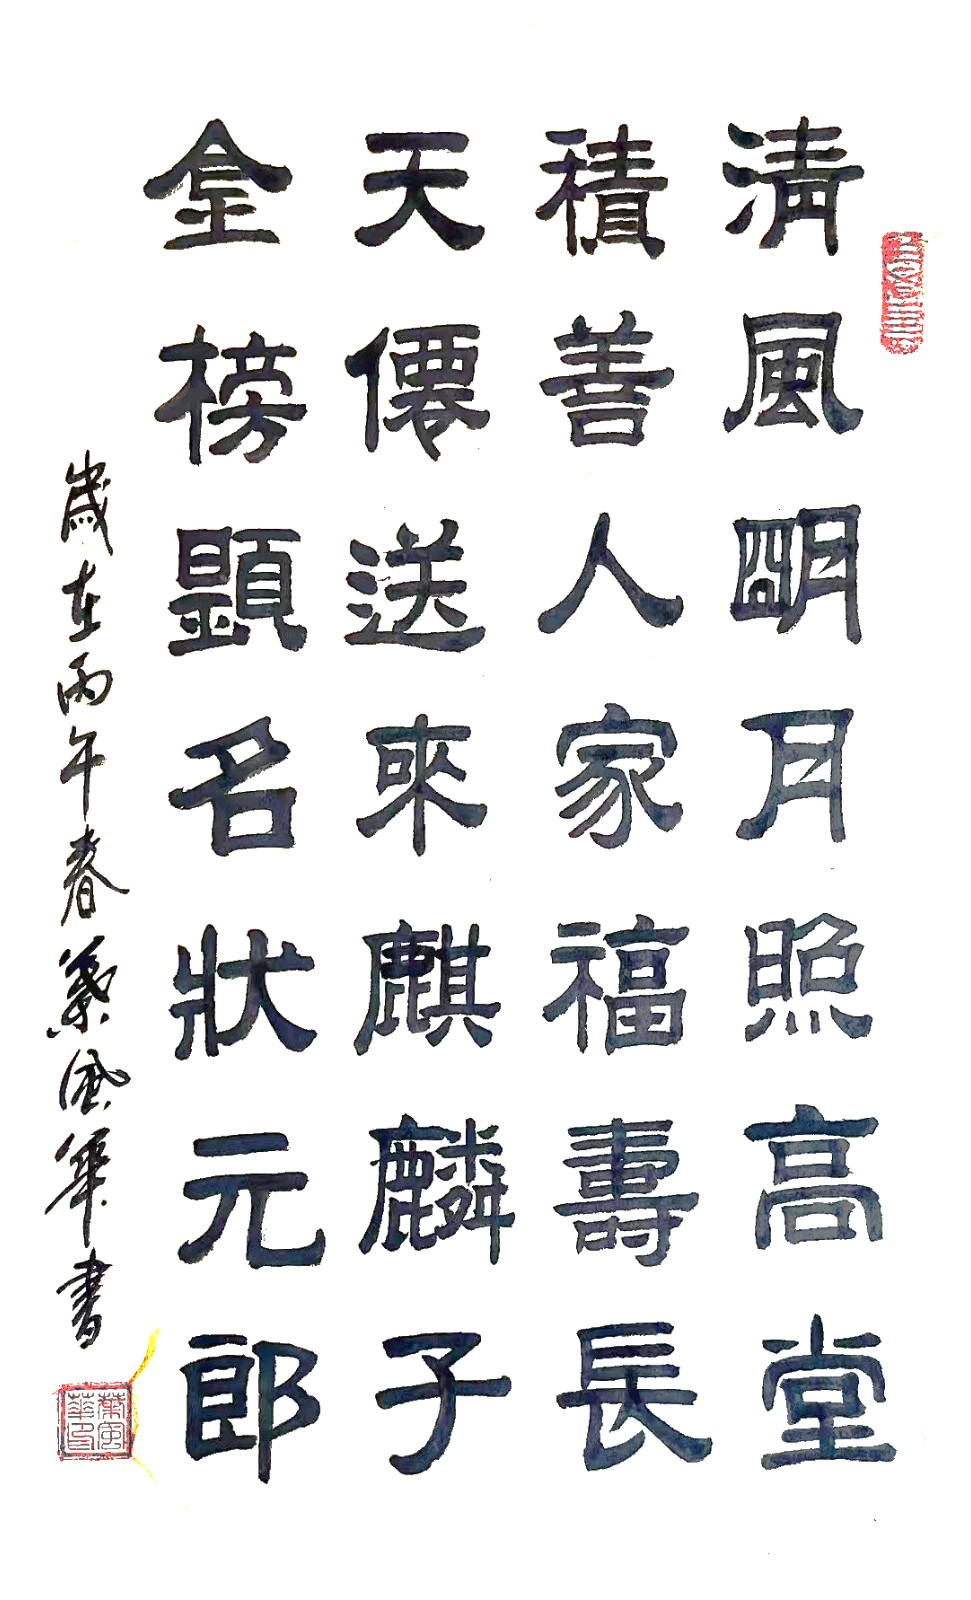 清風朙月照高堂
積善人家福壽長
天僊送來麒麟子
金榜顯名狀元郎
歲在丙午春葉風華書
葉風華印